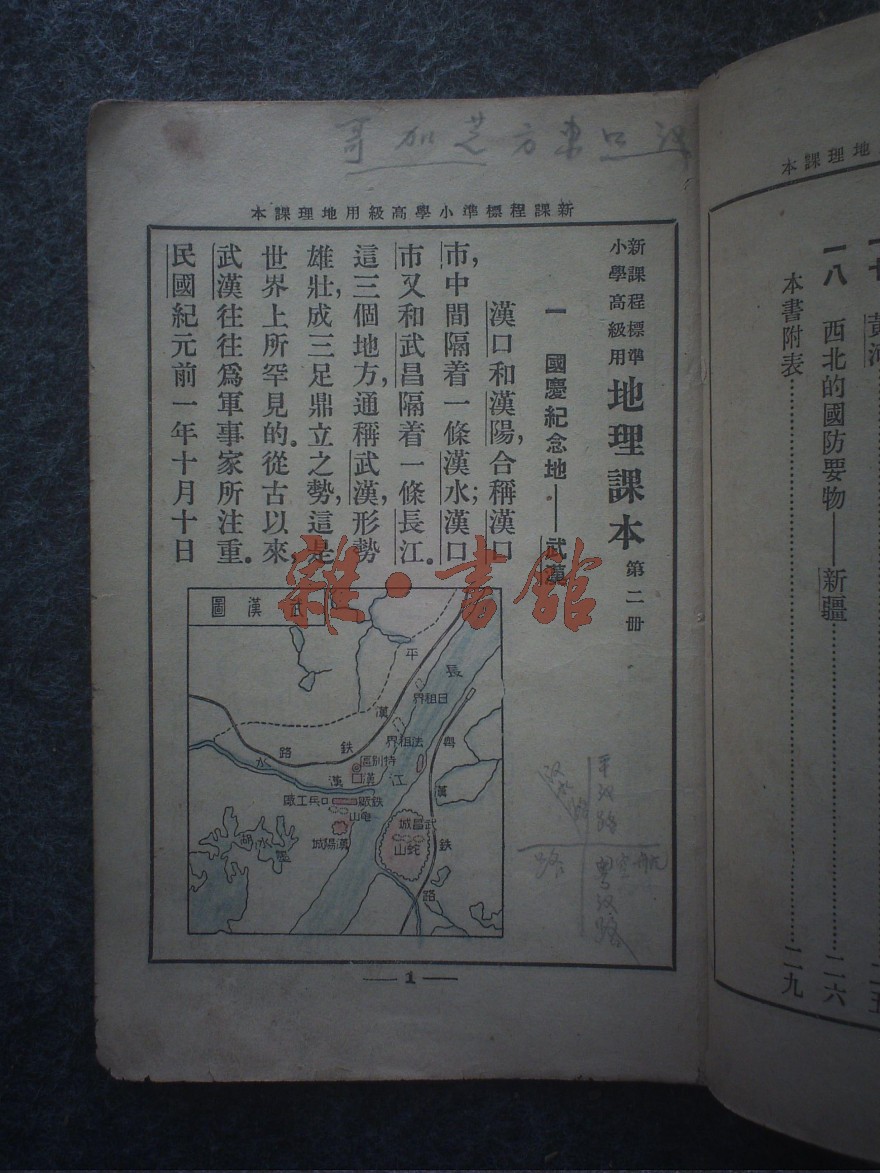 漢口東方芝加哥
新課程標準小學高級用地理課本
新課程標準
小學高級用
地理課本 第二冊
一 國慶紀念地——武漢
漢口和漢陽，合稱漢口
市，中間隔着一條漢水；漢口
市又和武昌隔着一條長江。
這三個地方，通稱武漢，形勢
雄壯，成三足鼎立之勢，這是
世界上所罕見的。從古以來，
武漢往往爲軍事家所注重。
民國紀元前一年十月十日
武漢圖
平漢鐵路
長江
日租界
法租界
特別區
漢口
漢水
兵工廠
鐵廠
龜山
漢陽城
武昌城
蛇山
粵漢鐵路
平汉路
粵汉路
航空
路
1
地理課本
黃河
一八 西北的國防要物——新疆 二六
本書附表 二九
雜·書館